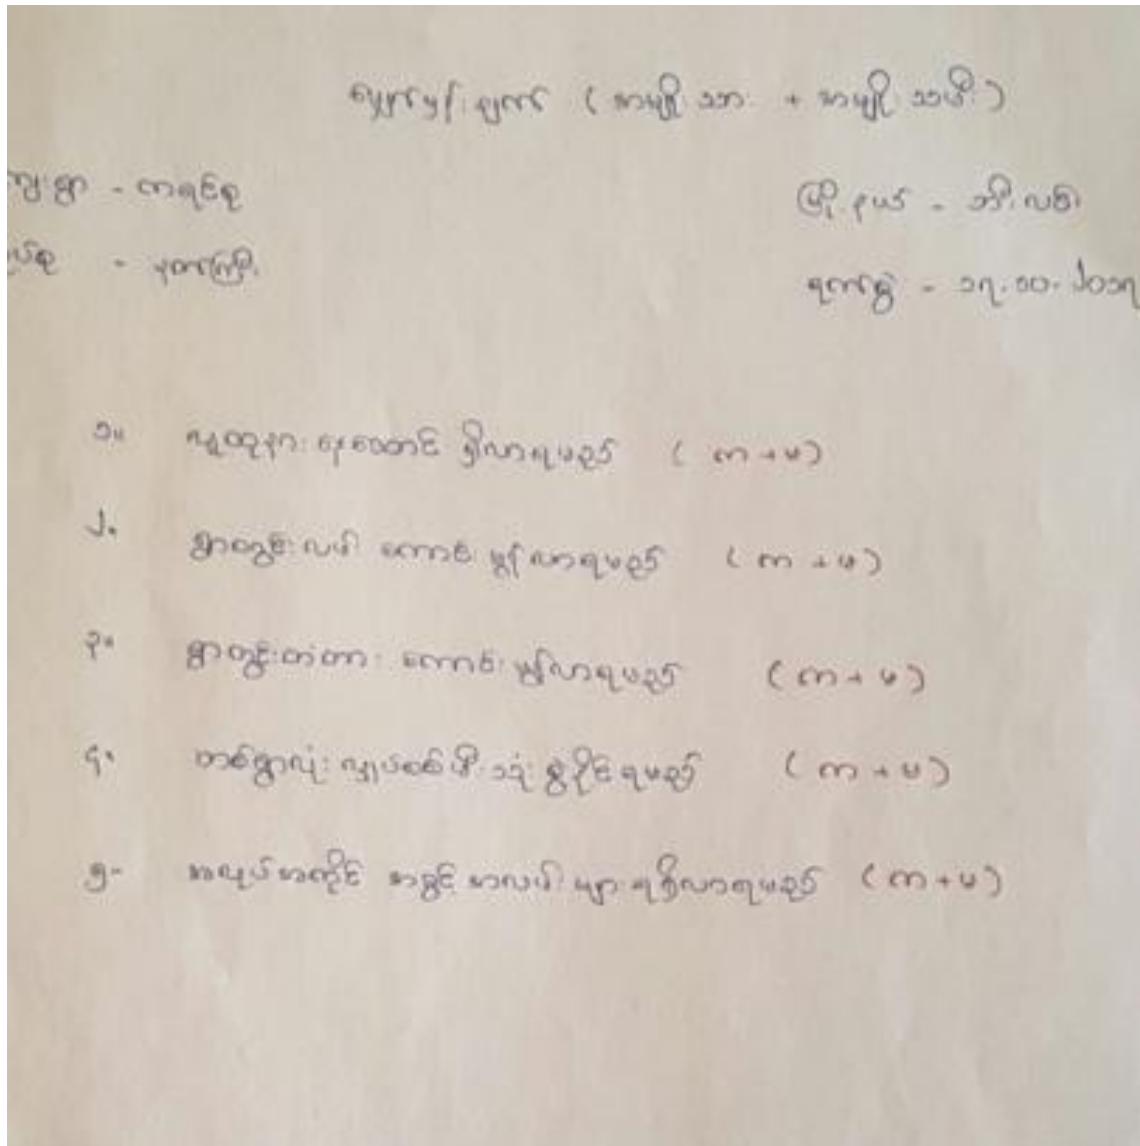 မျှော်မှန်းချက် (အမျိုးသား + အမျိုးသမီး)
ကျေးရွာ - ကရင်စု မြို့နယ် - ဘီးလင်း
အုပ်စု - နတ်ကြီး ရက်စွဲ - ၁၇.၁၀.၂၀၁၇
၁။ လူထုနားနေဆောင် ရှိလာရမည် (က + မ)
၂။ ရွာတွင်းလမ်း ကောင်းမွန်လာရမည် (က + မ)
၃။ ရွာတွင်းတံတား ကောင်းမွန်လာရမည် (က + မ)
၄။ တစ်ရွာလုံး လျှပ်စစ်မီးသုံးစွဲနိုင်ရမည် (က + မ)
၅။ အလုပ်အကိုင် အခွင့်အလမ်းများရရှိလာရမည် (က + မ)